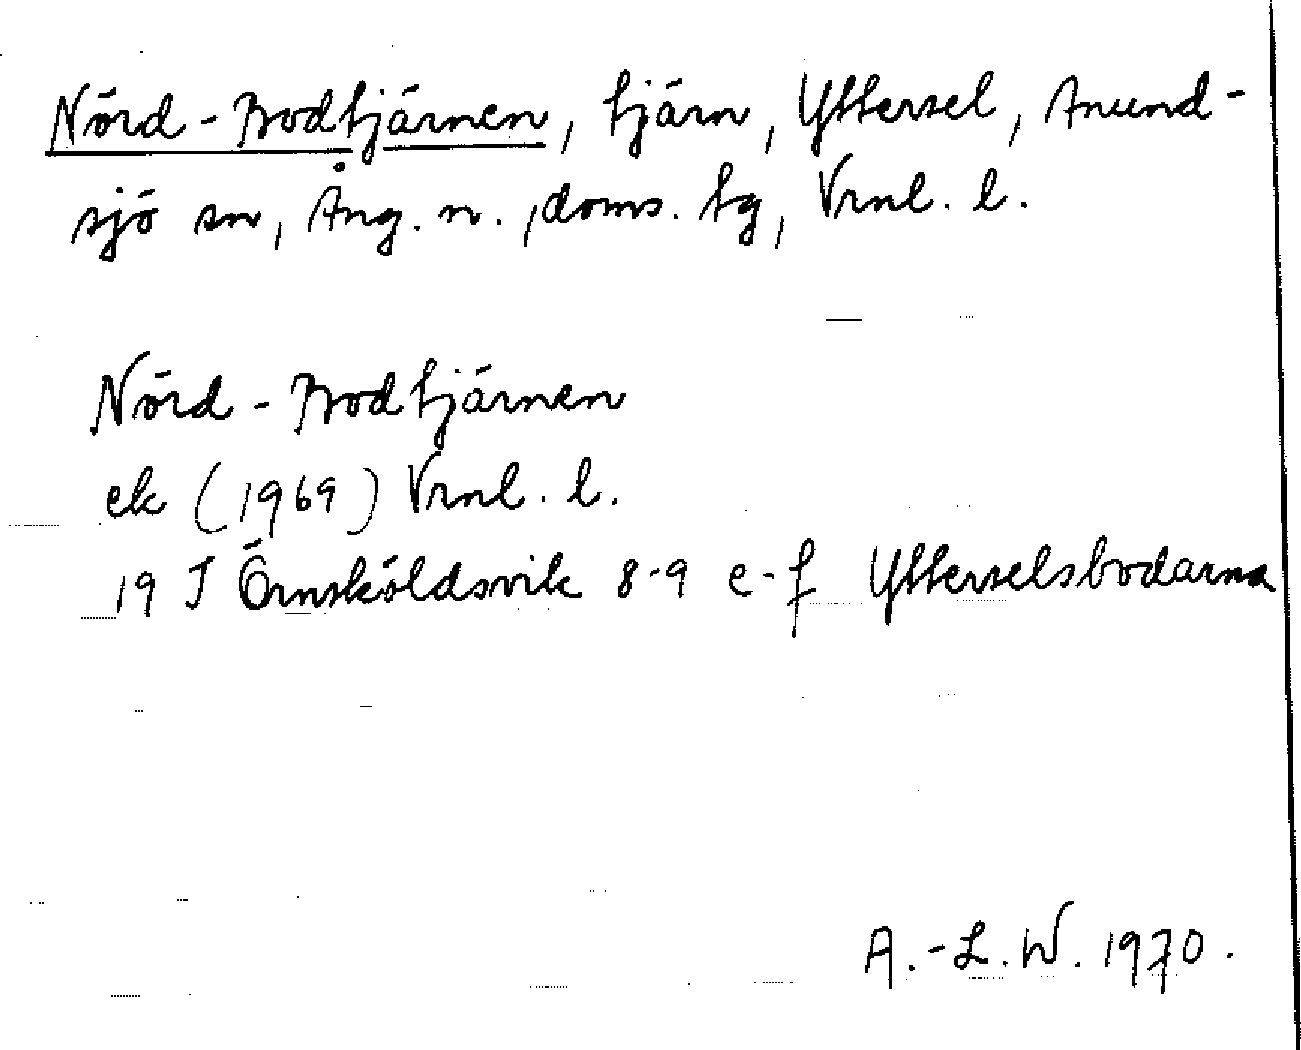 Nörd-Bodtjärnen, tjärn, Yttersel, Anund-
sjö sn, Ång. n., doms. tg, Vrnl. l.
Nörd-Bodtjärnen
ek (1969) Vrnl. l.
19 J Örnsköldsvik 8-9 e-f Ytterselsbodarna
A.-L. W. 1970.